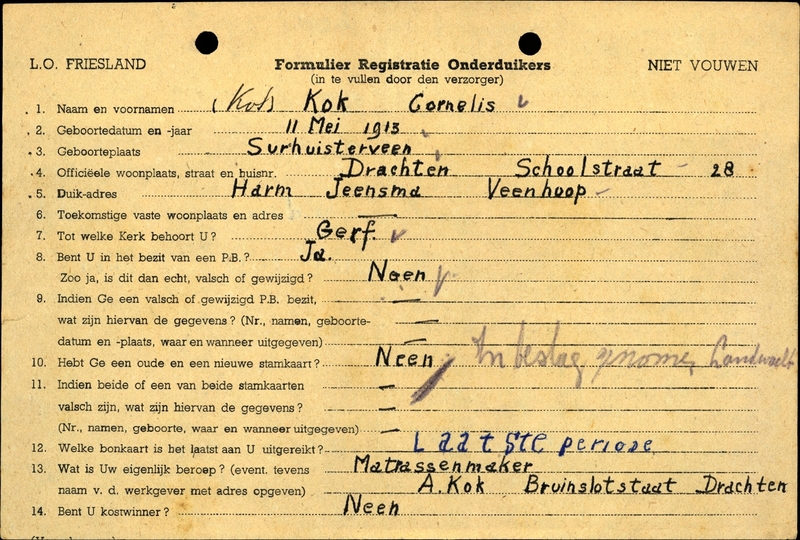 L.O. FRIESLAND Formulier Registratie Onderduikers NIET VOUWEN
(in te vullen door den verzorger)
1. Naam en voornamen (Kok) Kok Cornelis
2. Geboortedatum en -jaar 11 Mei 1913
3. Geboorteplaats Surhuisterveen
4. Officiëele woonplaats, straat en huisnr. Drachten Schoolstraat 28
5. Duik-adres Harm Jeensma Veenhoop
6. Toekomstige vaste woonplaats en adres —
7. Tot welke Kerk behoort U? Gerf.
8. Bent U in het bezit van een P.B.? Ja.
Zoo ja, is dit dan echt, valsch of gewijzigd? Neen
9. Indien Ge een valsch of gewijzigd P.B. bezit, —
wat zijn hiervan de gegevens? (Nr., namen, geboorte- —
datum en -plaats, waar en wanneer uitgegeven) —
10. Hebt Ge een oude en een nieuwe stamkaart? Neen In beslag genomen Landwacht
11. Indien beide of een van beide stamkaarten —
valsch zijn, wat zijn hiervan de gegevens? —
(Nr., namen, geboorte, waar en wanneer uitgegeven) —
12. Welke bonkaart is het laatst aan U uitgereikt? Laatste periode
13. Wat is Uw eigenlijk beroep? (event. tevens Matrassenmaker
naam v. d. werkgever met adres opgeven) A. Kok Bruinslotstaat Drachten
14. Bent U kostwinner? Neen